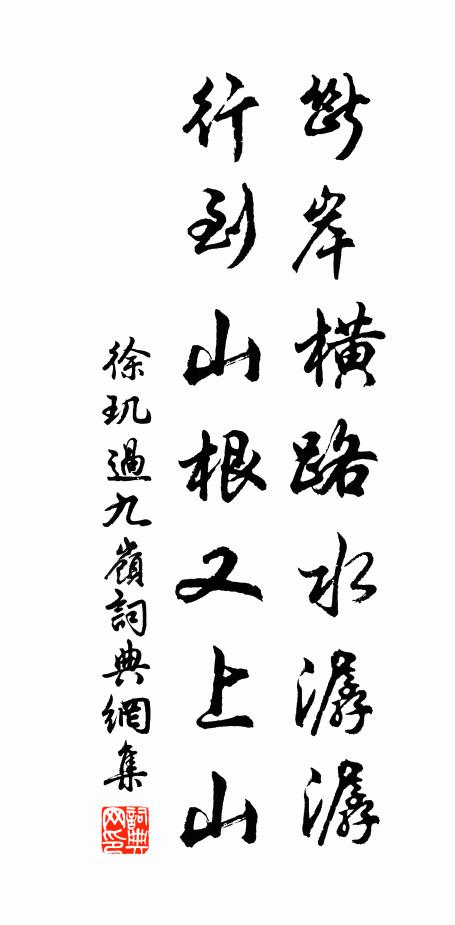 斷岸橫路水潺潺
行到山根又上山
徐玑過九嶺詞典網集
詞典
网印